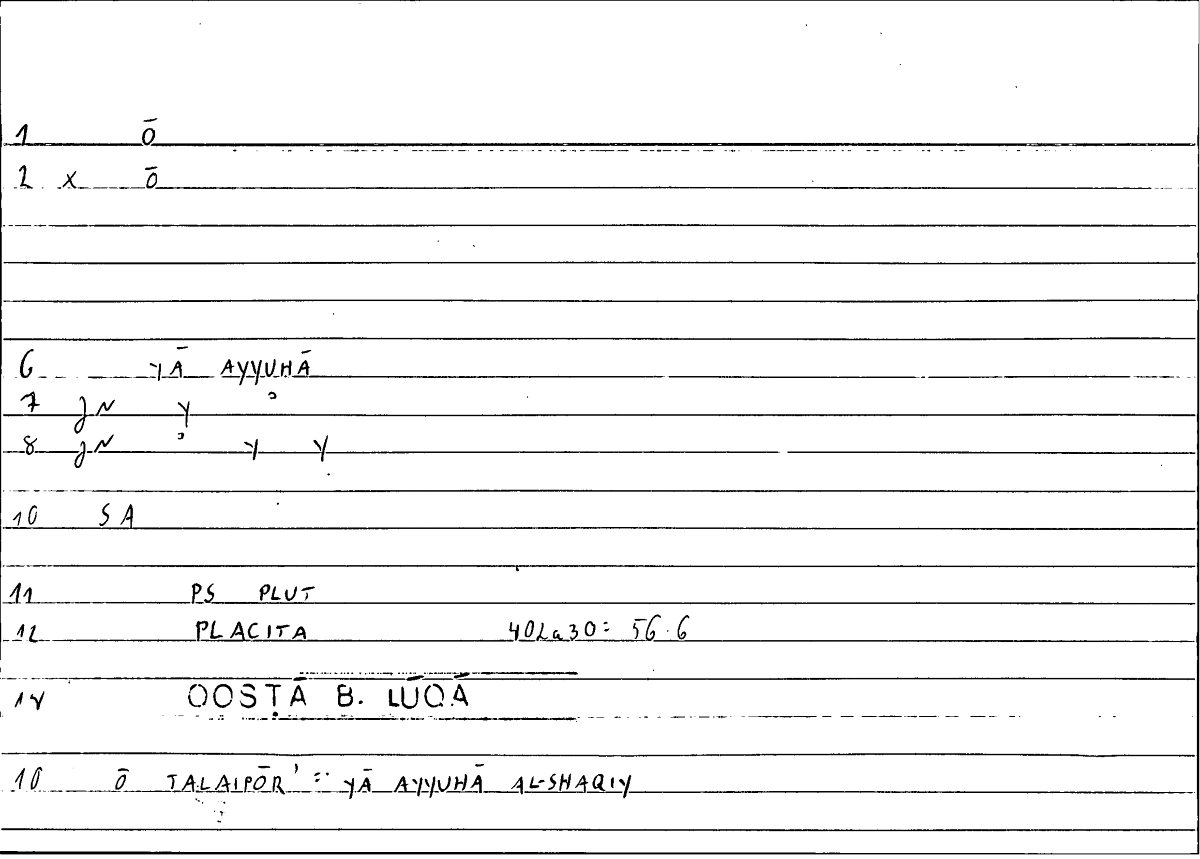 1 ō
2 x ō
6 yĀ AYYUHĀ
7 gN y ʾ
8 gN ʾ y y
10 SA
11 PS PLUT
12 PLACITA 402a30: 56.6
14 QOSṬĀ B. LŪQĀ
10 ō TALAIPŌR' = yĀ AYYUHĀ AL-SHAQIY